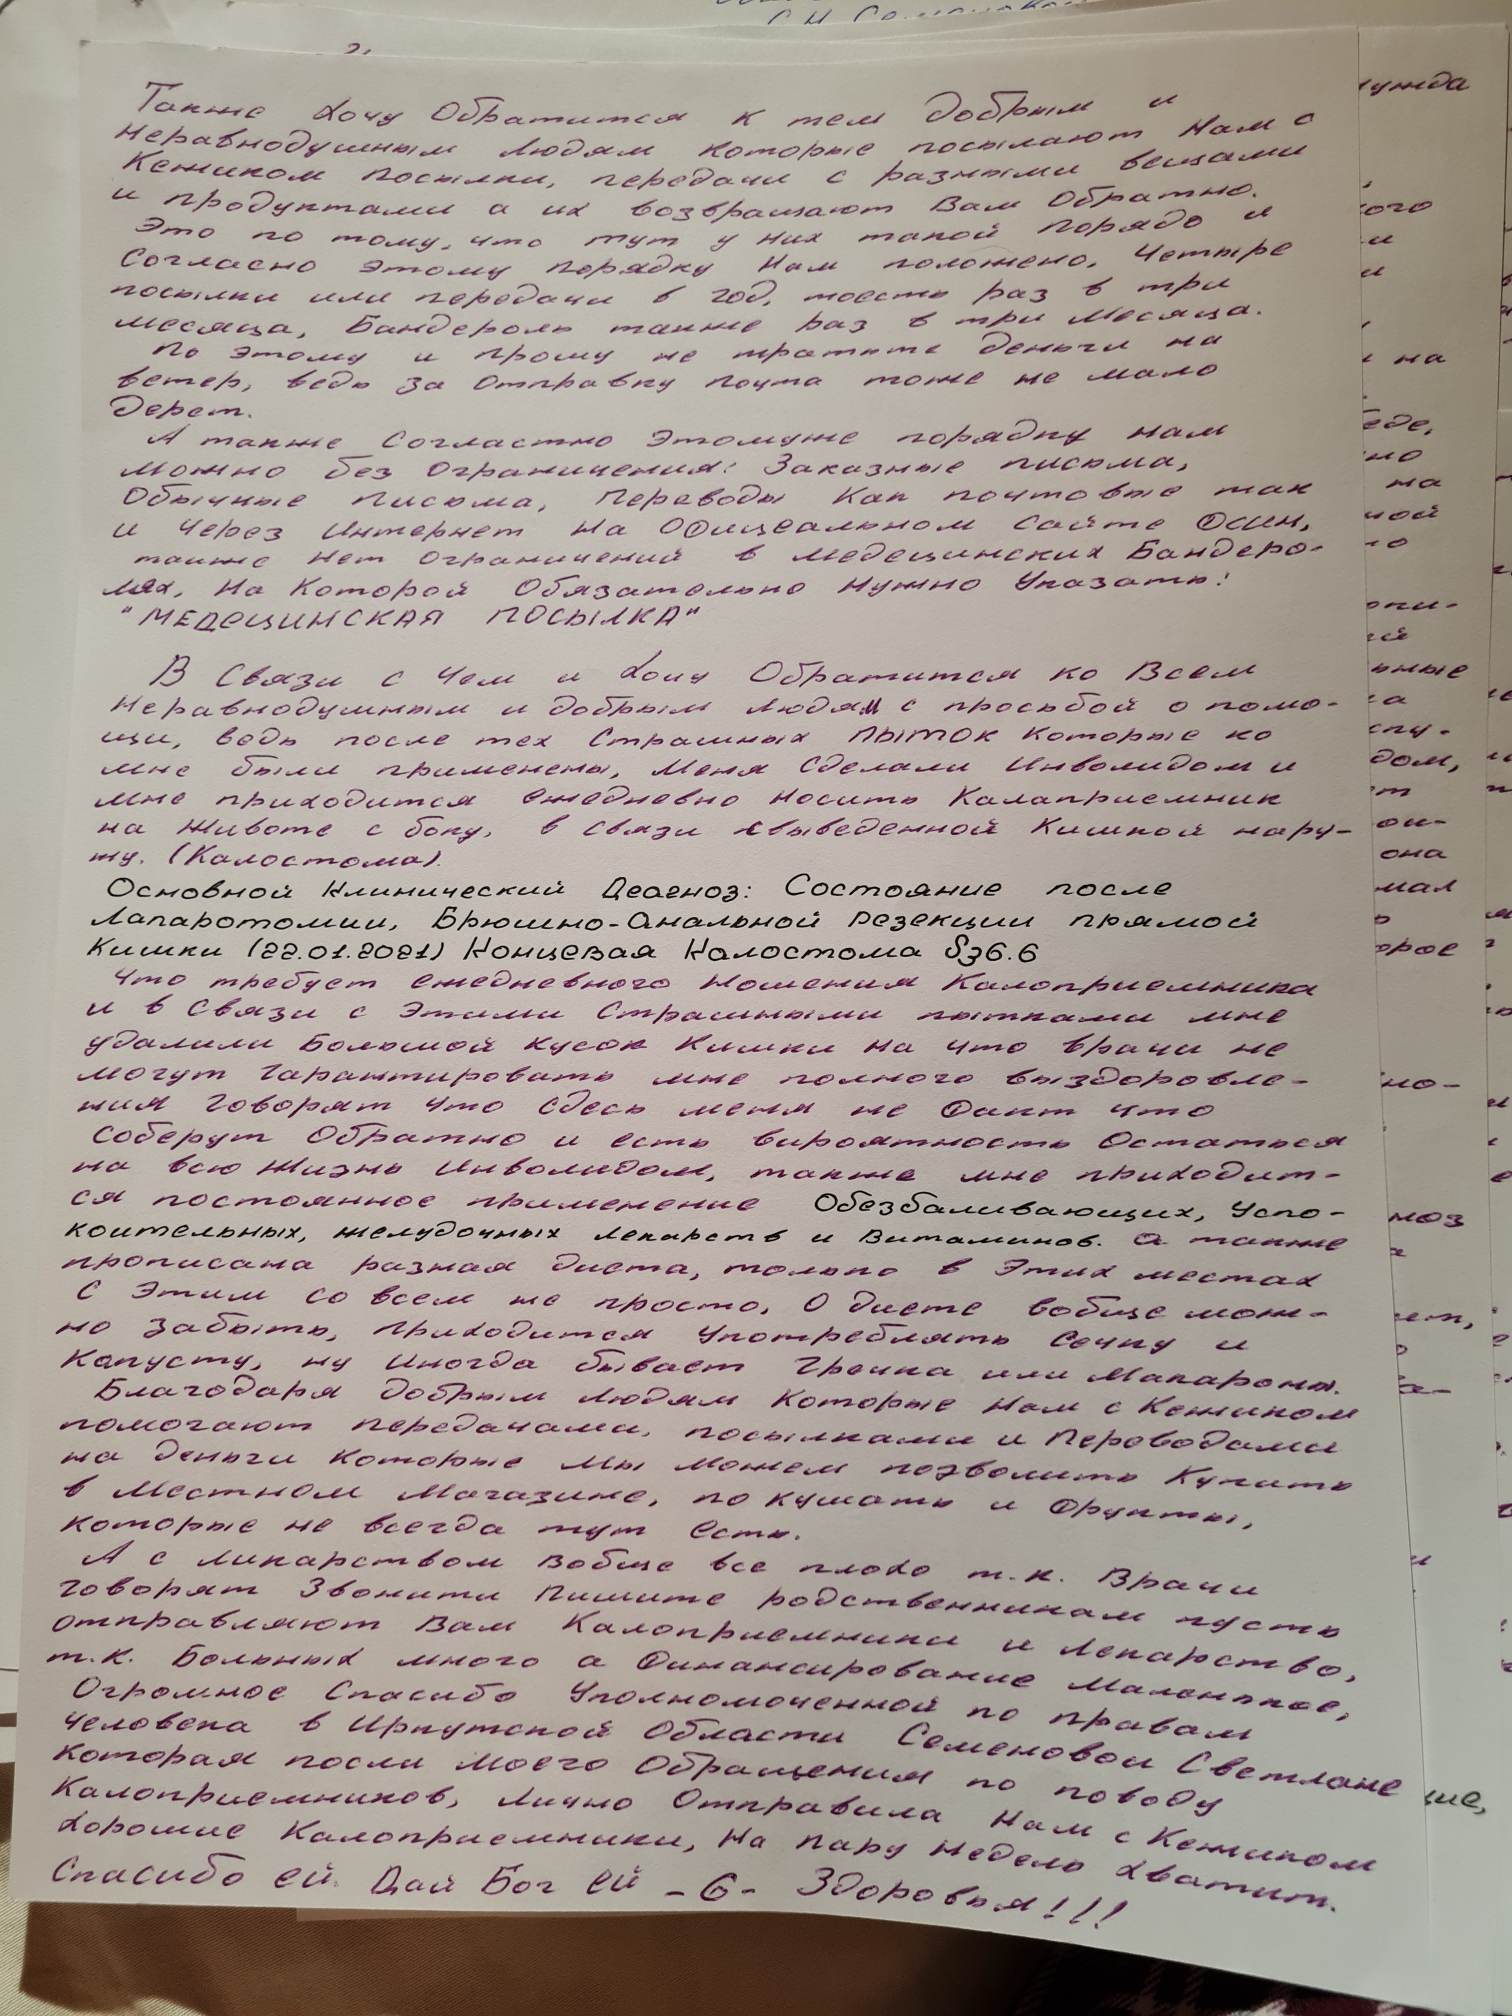 Также хочу Обратится к тем добрым и
Неравнодушным людям которые посылают Нам с
Кежиком посылки, передачи с разными вещами
и продуктами а их возвращают Вам Обратно.
Это по тому, что тут у них такой порядо и
Согласно этому порядку Нам положено, Четыре
посылки или передачи в год, тоесть раз в три
месяца, Бандероль также раз в три Месяца.
По этому и прошу не тратите деньги на
ветер, ведь за отправку почта тоже не мало
дерет.
А также Согластно этомуже порядку нам
можно без ограничения: Заказные письма,
Обычные письма, Переводы Как почтовые так
и через Интернет на Официальном сайте Фсин,
также Нет Ограничений в медецинских Бандеро-
лях, На Которой Обязательно нужно Указать:
"МЕДЕЦИНСКАЯ ПОСЫЛКА"
В Связи с чем и хочу Обратится ко Всем
Неравнодушным и добрым людям с просьбой о помо-
щи, ведь после тех Страшных пыток которые ко
мне были применены, Меня Сделали Инволидом и
мне приходится ежедневно носить Калаприемник
на Животе с боку, в связи свыведенной Кишкой нару-
жу. (Калостома).
Основной Клинический Деагноз: Состояние после
Лапаротомии, Брюшно-Анальной резекции прямой
Кишки (22.01.2021) Концевая Калостома §z6.6
Что требует ежедневного Ношения Калоприемника
и в Связи с Этими Страшными пытками мне
удалили Большой Кусок Кишки на что врачи не
могут гарантировать мне полного выздоровле-
ния говорят что сдесь меня не Факт что
соберут Обратно и есть вироятность Остаться
на всю Жизнь Инволидом, также мне приходит-
ся постоянное применение Обезбаливающих, Успо-
коительных, желудочных лекарств и Витаминов. а также
прописана разная диета, только в Этих местах
С Этим со всем не просто, О диете вобще мож-
но забыть, приходится употреблять Сечку и
Капусту, ну Иногда бывает Гречка или Макароны.
Благодаря добрым людям Которые Нам с Кежиком
помогают передачами, посылками и Переводами
на деньги Которые мы можем позволить Купить
в Местном Магазине, по кушать и Фрукты,
которые не всегда тут есть.
А с ликарством вобще все плохо т.к. Врачи
говорят Звонити Пишите родственникам пусть
отправляют Вам Калоприемники и лекарство,
т.к. Больных много а Финансирование Маленькое,
Огромное Спасибо Уполномоченной по правам
человека в Иркутской Области Семеновой Светлане
Которая посли моего Обращения по поводу
Калоприемников, лично Отправила Нам с Кежиком
хорошие Калоприемники, На пару недель хватит.
Спасибо ей. Дай Бог ей -6- Здоровья!!!